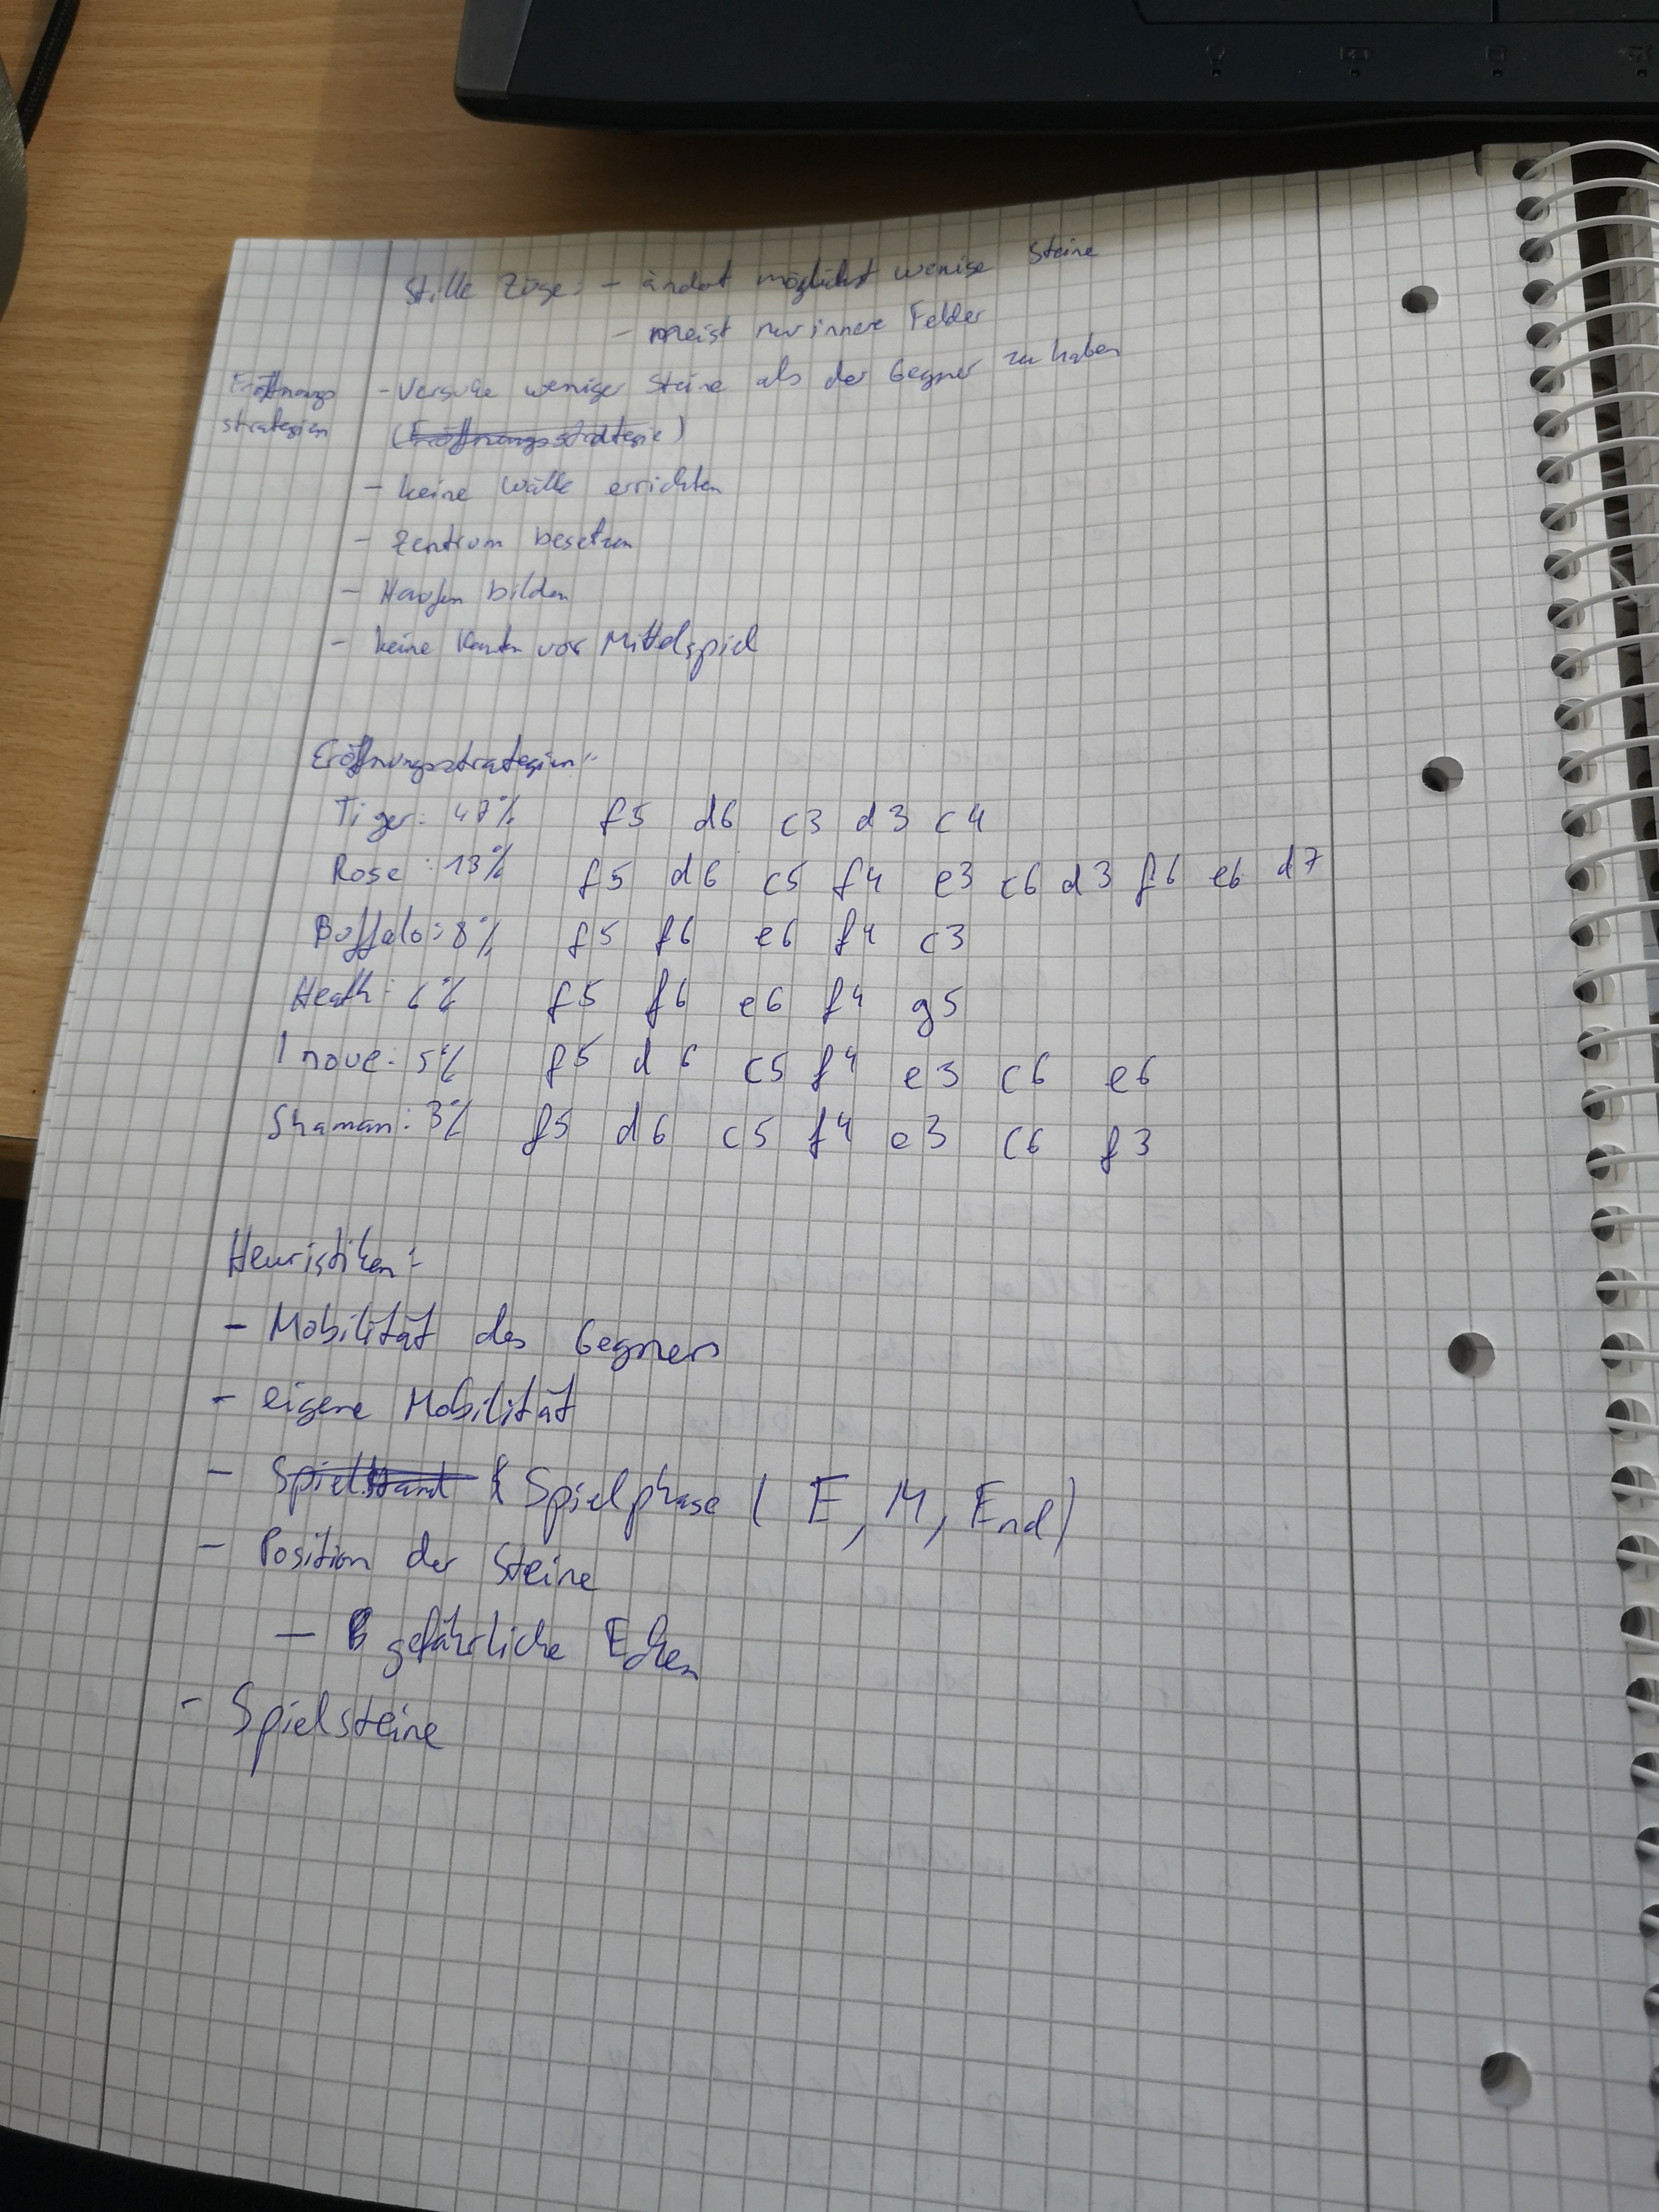 Stille Züge: - ändert möglichst wenige Steine
- meist nur innere Felder
Eröffnungs
strategien
- Versuche weniger Steine als der Gegner zu haben
(Eröffnungsstrategie)
- keine Wälle errichten
- Zentrum besetzen
- Haufen bilden
- keine Kanten vor Mittelspiel
Eröffnungsstrategien:
Tiger: 47% f5 d6 c3 d3 c4
Rose: 13% f5 d6 c5 f4 e3 c6 d3 f6 e6 d7
Buffalo: 8% f5 f6 e6 f4 c3
Heath: 6% f5 f6 e6 f4 g5
Inoue: 5% f5 d6 c5 f4 e3 c6 e6
Shaman: 3% f5 d6 c5 f4 e3 c6 f3
Heuristiken:
- Mobilität des Gegners
- eigene Mobilität
- Spielstand Spielphase (E, M, End)
- Position der Steine
- gefährliche Ecken
- Spielsteine